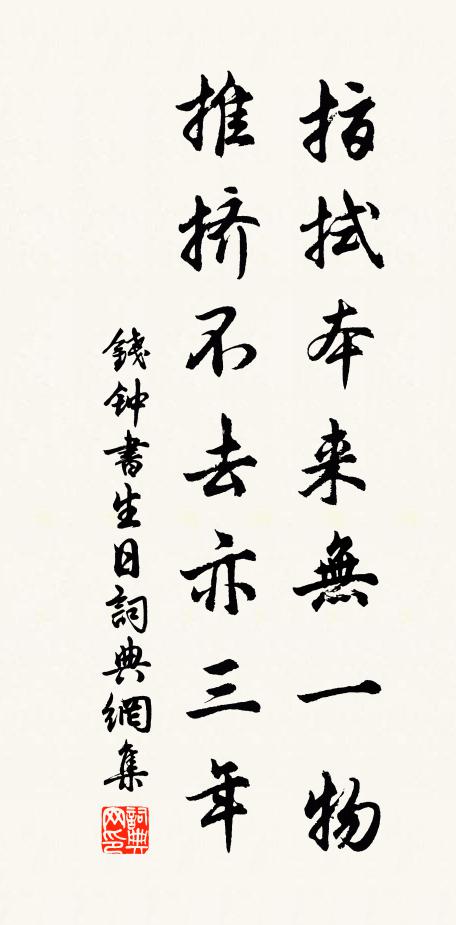 揩拭本来無一物
推挤不去亦三年
錢钟書生日詞典網集
詞典网印